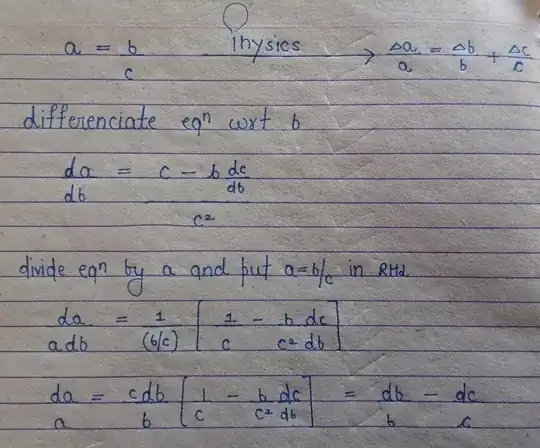 a = b/c Physics → Δa/a = Δb/b + Δc/c
differenciate eqⁿ wrt b
da/db = (c - b dc/db)/c²
divide eqⁿ by a and put a=b/c in RHS
da/adb = 1/(b/c) [1/c - b/c² dc/db]
da/a = cdb/b [1/c - b/c² dc/db] = db/b - dc/c